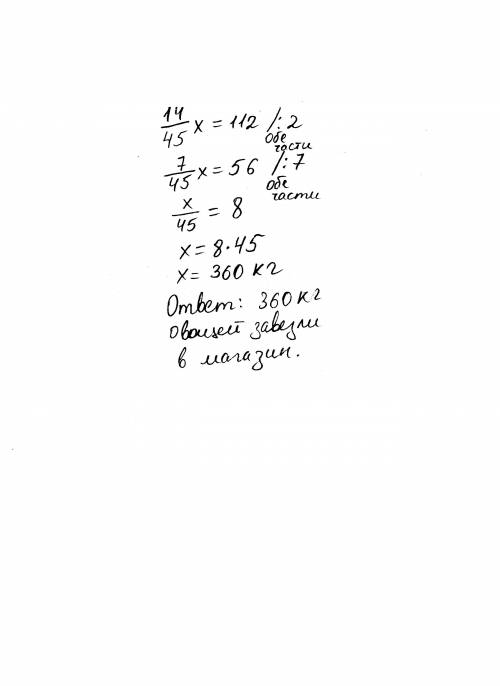 14/45 x = 112 /:2 обе части
7/45 x = 56 /:7 обе части
x/45 = 8
x = 8·45
x = 360 кг
Ответ: 360 кг
овощей завезли
в магазин.